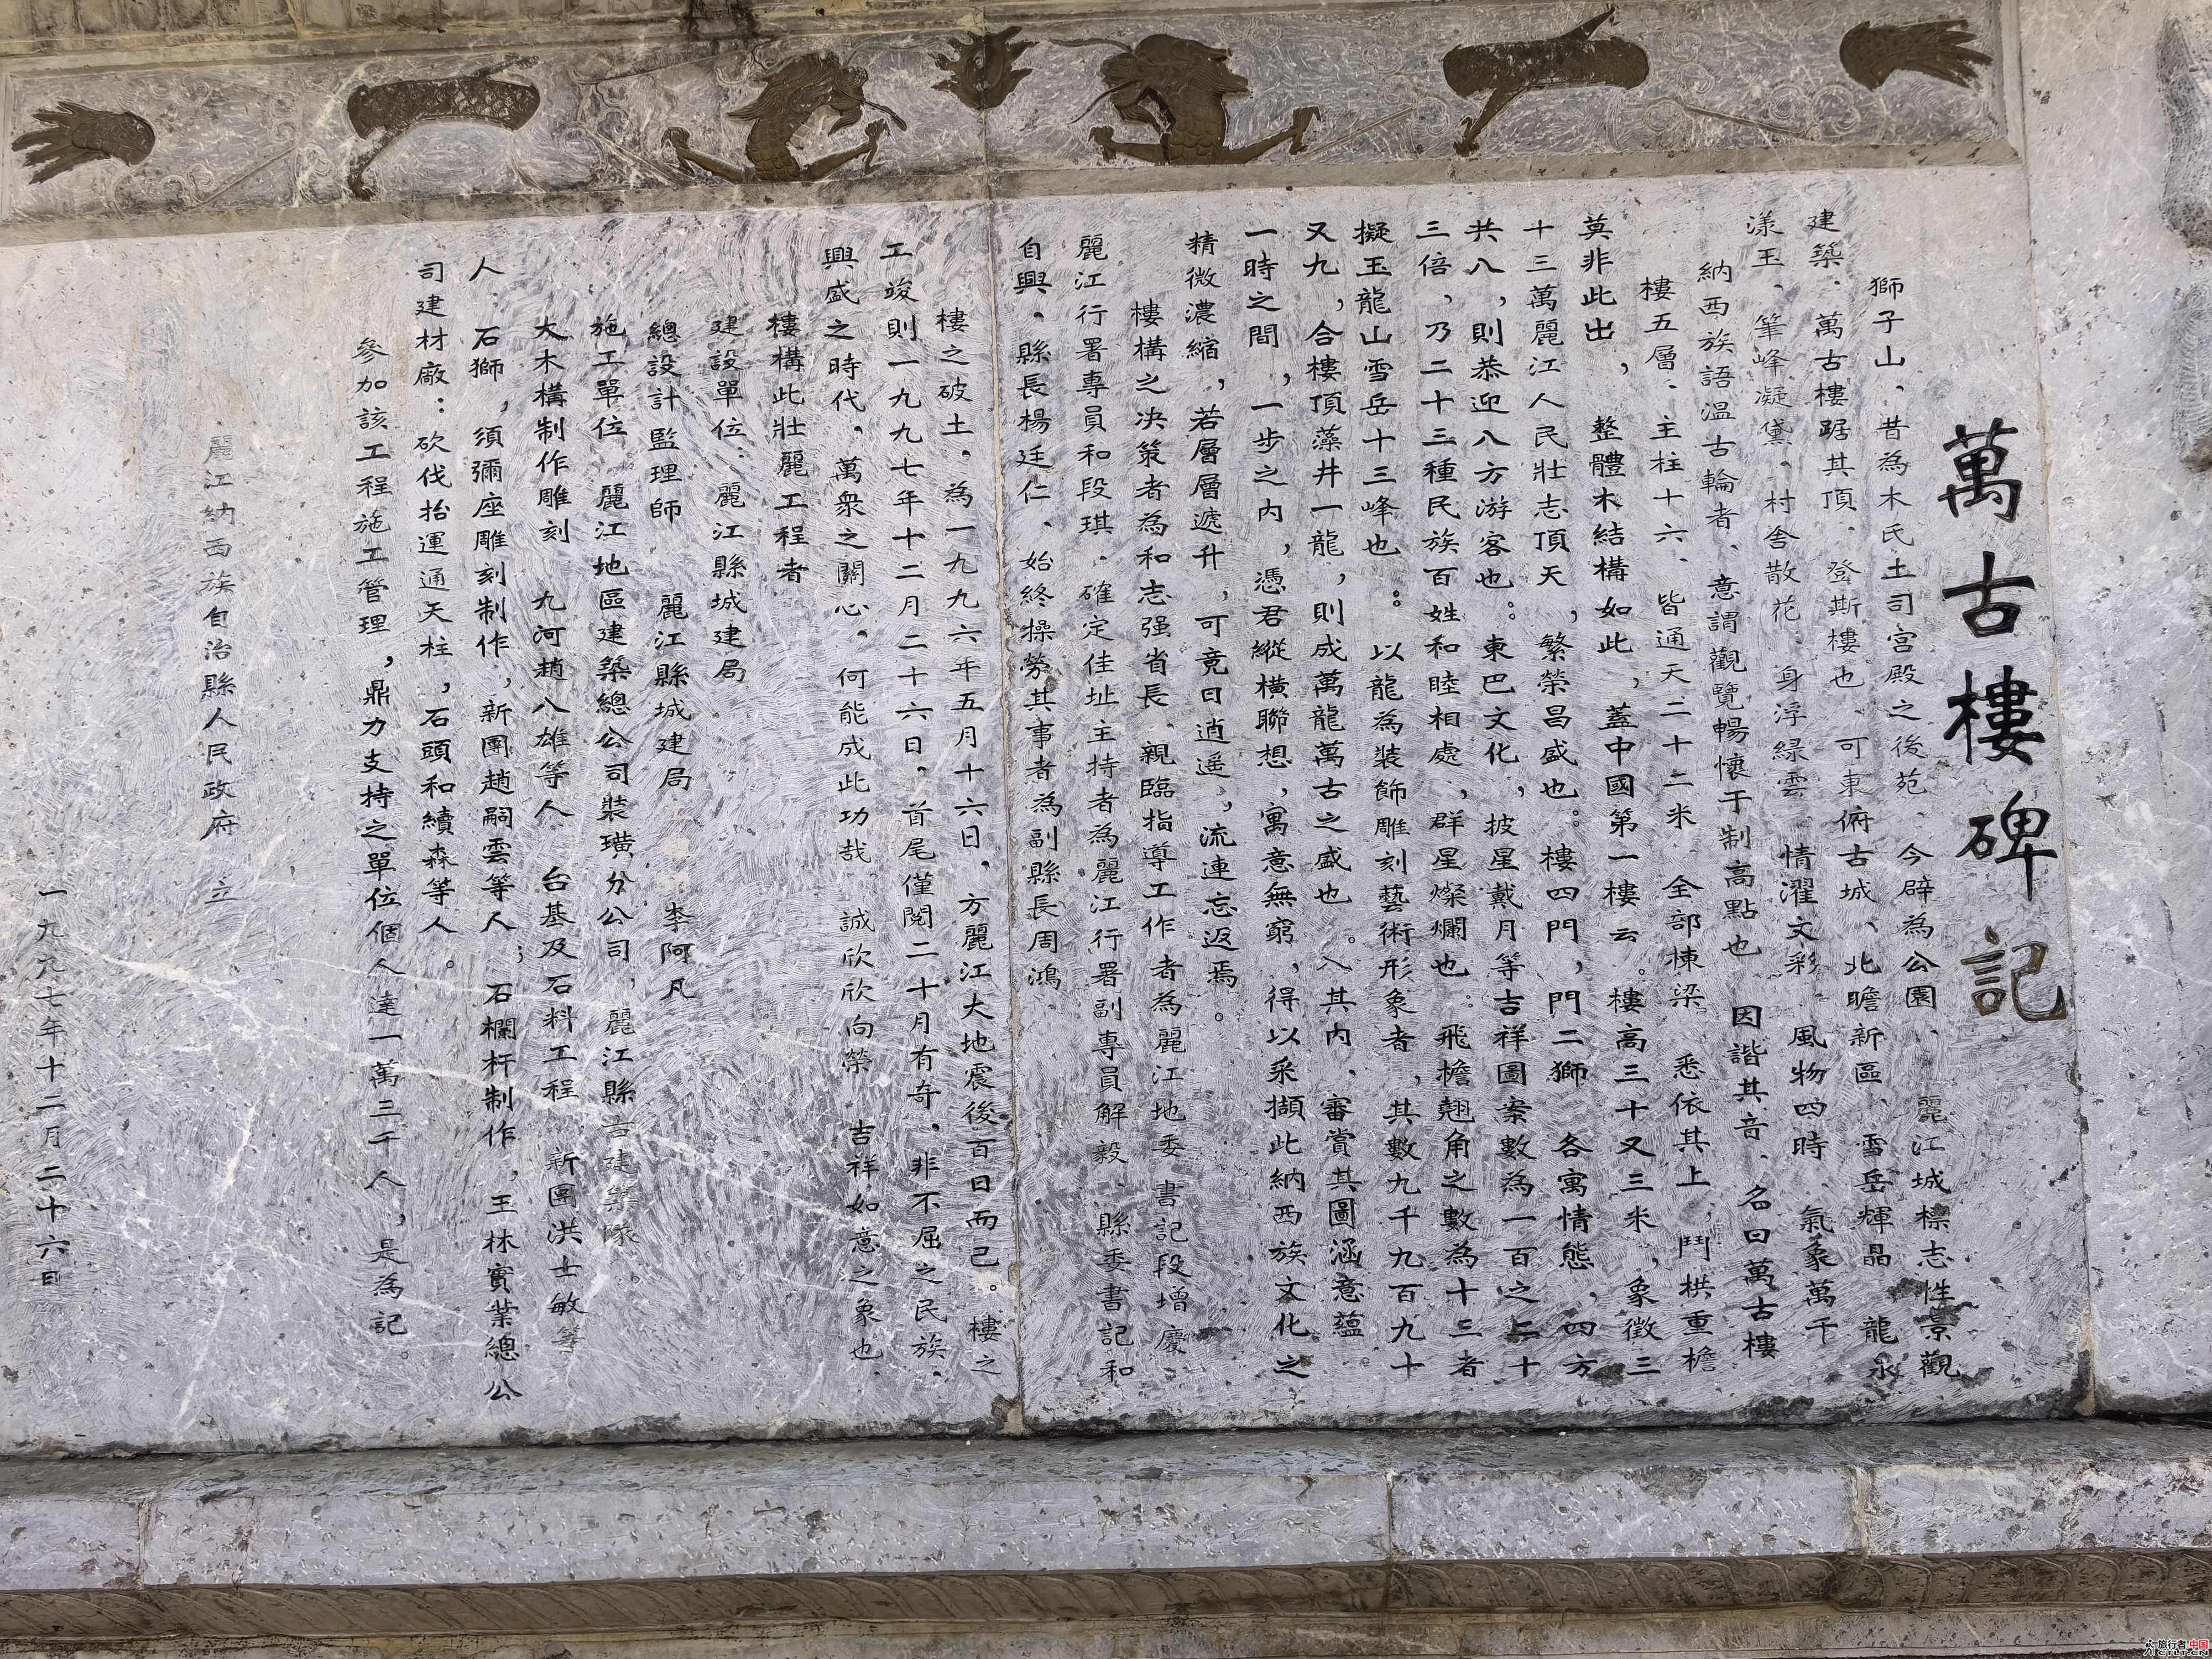 萬古樓碑記
獅子山、昔為木氏土司宮殿之後苑、今辟為公園、麗江城標志性景觀
建築、萬古樓踞其頂、登斯樓也、可東俯古城、北瞻新區、雪岳輝晶、龍永
漾玉、筆峰凝黛、村舍散花、身浮綠雲、情濯文彩、風物四時、氣象萬千
納西族語溫古輪者、意謂觀覽暢懷于制高點也 因諧其音、名曰萬古樓
樓五層、主柱十六、皆通天二十二米 全部棟梁 悉依其上,鬥栱重檐
莫非此出, 整體木結構如此,蓋中國第一樓云。樓高三十又三米,象徵三
十三萬麗江人民壯志頂天,繁榮昌盛也。樓四門,門二獅 各寓情態,四方
共八,則恭迎八方游客也:東巴文化,披星戴月等吉祥圖案數為一百之二十
三倍,乃二十三種民族百姓和睦相處,群星燦爛也。飛檐翹角之數為十三者
擬玉龍山雪岳十三峰也:以龍為裝飾雕刻藝術形象者,其數九千九百九十
又九,合樓頂藻井一龍,則成萬龍萬古之盛也。入其内、審賞其圖涵意蘊
一時之間,一步之内,憑君縱橫聯想,寓意無窮,得以采擷此納西族文化之
精微濃縮,若層層遞升,可竟日逍遥,流連忘返焉。
樓構之决策者為和志强省長、親臨指導工作者為麗江地委書記段增慶、
麗江行署專員和段琪、確定佳址主持者為麗江行署副專員解毅、縣委書記和
自興、縣長楊廷仁、始終操勞其事者為副縣長周鴻
樓之破土、為一九九六年五月十六日,方麗江大地震後百日而已。樓之
工竣則一九九七年十二月二十六日、首尾僅閲二十月有奇、非不屈之民族、
興盛之時代、萬衆之關心、何能成此功哉 誠欣欣向榮 吉祥如意之象也
樓構此壯麗工程者
建設單位:麗江縣城建局
總設計監理師 麗江縣城建局 李阿凡
施工單位 麗江地區建築總公司裝璜分公司,麗江縣古建築隊
大木構制作雕刻 九河趙八雄等人 台基及石料工程 新團洪士敏等
人 石獅,須彌座雕刻制作,新團趙嗣雲等人;石欄杆制作,玉林實業總公
司建材廠:砍伐抬運通天柱,石頭和續森等人。
參加該工程施工管理,鼎力支持之單位個人達一萬三千人,是為記。
麗江納西族自治縣人民政府 立
一九九七年十二月二十六日
旅行者 中国